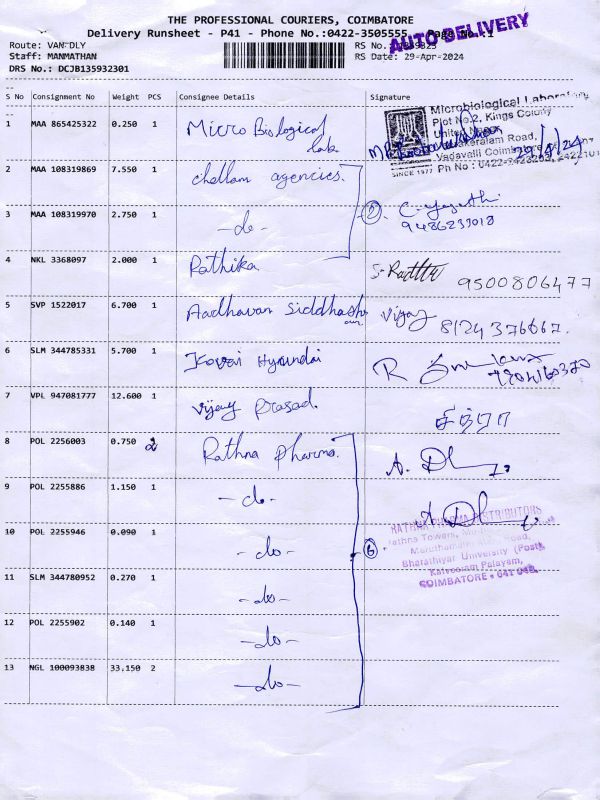 THE PROFESSIONAL COURIERS, COIMBATORE
AUTO DELIVERY
Delivery Runsheet - P41 - Phone No.:0422-3505555, Page No.:1
Route: VAN DLY
RS No.:
Staff: MANMATHAN
RS Date: 29-Apr-2024
DRS No.: DCJB135932301
S No Consignment No Weight PCS Consignee Details Signature
1 MAA 865425322 0.250 1 Micro Biological lab.
Microbiological Laboratory
Plot No.2, Kings Colony
Vadavalli
SINCE 1977 Ph No :
29/4/24
2 MAA 108319869 7.550 1 chellam agencies.
3 MAA 108319970 2.750 1 -do- (2)
9486233018
4 NKL 3368097 2.000 1 Rathika
9500806477
5 SVP 1522017 6.700 1 Aadhavan Siddhashram Vijay 8124376667.
6 SLM 344785331 5.700 1 Kovai Hyundai R
7 VPL 947081777 12.600 1 Vijay Prasad. சித்ரா
8 POL 2256003 0.750 2 Rathna Pharma.
9 POL 2255886 1.150 1 -do-
RATHNA PHARMA DISTRIBUTORS
Rathna Towers,
Road,
10 POL 2255946 0.090 1 -do- (6)
Bharathiyar University (Post)
Kalveeram Palayam,
COIMBATORE - 641 046.
11 SLM 344780952 0.270 1 -do-
12 POL 2255902 0.140 1 -do-
13 NGL 100093838 33.150 2 -do-